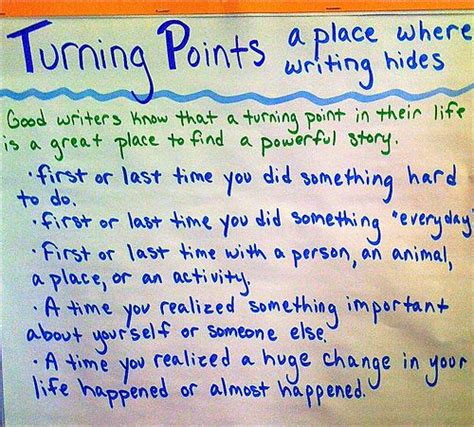 Turning Points a place where
writing hides
Good writers know that a turning point in their life
is a great place to find a powerful story.
• first or last time you did something hard
to do.
• first or last time you did something "everyday"
• First or last time with a person, an animal,
a place, or an activity.
• A time you realized something important
about yourself or someone else.
• A time you realized a huge change in your
life happened or almost happened.